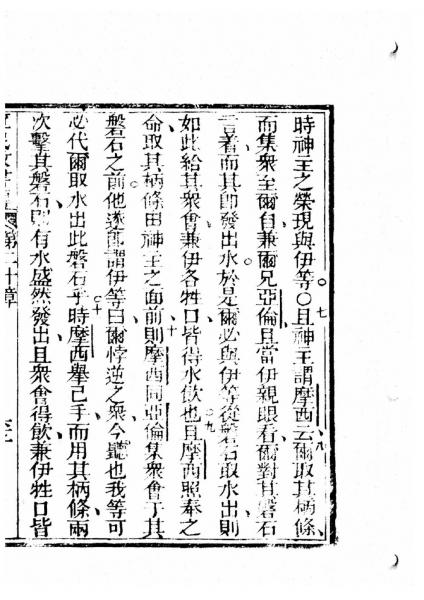 七 八
時神主之榮現與伊等〇且神主謂摩西云爾取其柄條
而集衆至爾自兼爾兄亞倫且當伊親眼看爾對其磐石
言著而其卽發出水於是爾必與伊等從磐石取水出則
九
如此給其衆會兼伊各牲口皆得水飲也且摩西照奉之
十
命取其柄條由神主之面前則摩西同亞倫集衆會于其
磐石之前他遂謂伊等曰爾悖逆之衆今聽也我等可
十
必代爾取水出此磐石乎時摩西舉己手而用其柄條兩
次擊其磐石卽有水盛然發出且衆會得飲兼伊牲口皆
第二十章